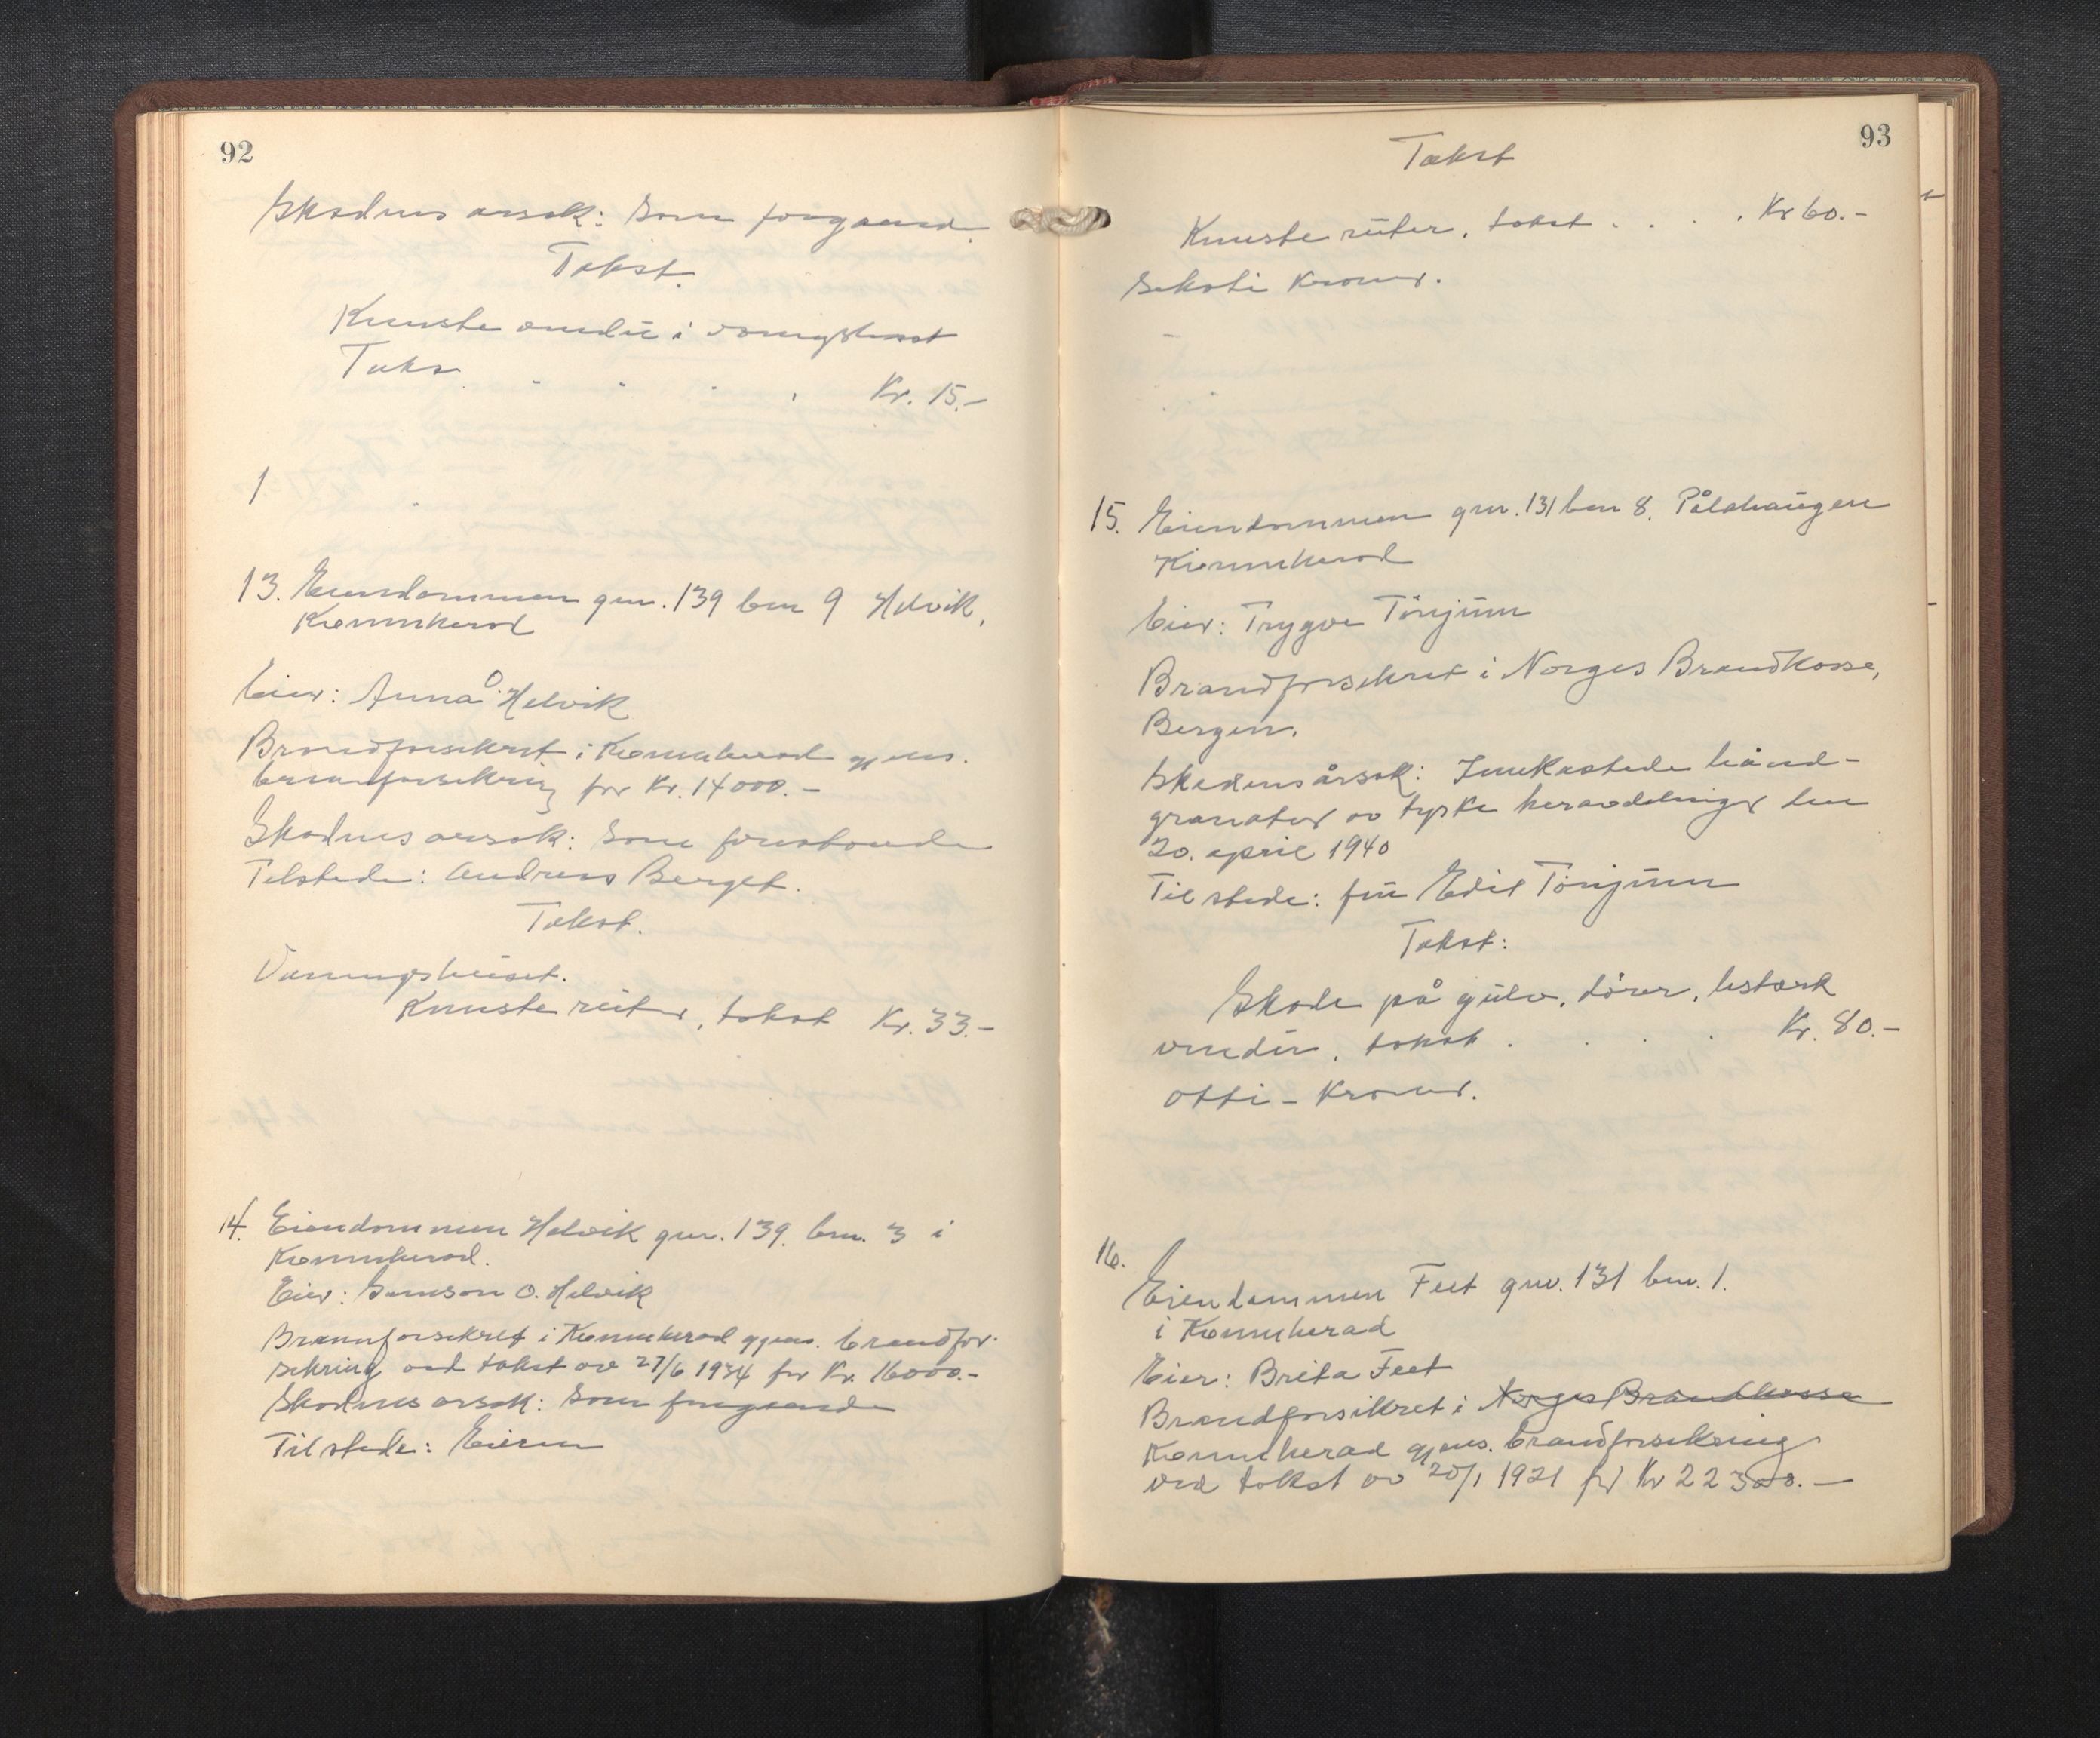 92
Skadens årsak: Som forgaaend.
Takst.
Knuste vindu i vaaningshuset
Takst . . . . Kr. 15.-
1
13. Eiendommen gnr. 139 bnr 9 Helvik,
Kvinnherad
Eier: Anna O. Helvik
Brandforsikret i Kvinnherad gjens.
brannforsikring for Kr. 14000.-
Skadens årsak: Som forestaaende
Tilstede: Andreas Berget.
Takst.
Vaaningshuset.
Knuste ruter, takst Kr. 33.-
14. Eiendommen Helvik gnr. 139. bnr. 3 i
Kvinnherad.
Eier: Samson O. Helvik
Brannforsikret i Kvinnherad gjens. brandfor-
sikring ved takst av 27/6 1934 for Kr. 16000.-
Skadens årsak: Som foregaaende
Tilstede: Eieren
93
Takst
Knuste ruter, takst . . . . Kr 60.-
Seksti kroner.
15. Eiendommen gnr. 131 bnr 8. Pålshaugen
Kvinnherad
Eier: Trygve Tönjum
Brandforsikret i Norges Brandkasse,
Bergen.
Skadens årsak: Innkastede hånd-
granater av tyske heravdelinger den
20. april 1940
Tilstede: fru Edit Tönjum
Takst:
Skade på gulv, dører,
vinduer, takst . . . . Kr. 80.-
Otti - Kroner.
16.
Eiendommen Feet gnr. 131 bnr. 1.
i Kvinnherad
Eier: Brita Feet
Brandforsikret i Norges Brandkasse
Kvinnherad gjens. brandforsikring
ved takst av 20/1 1921 for Kr 22300.-